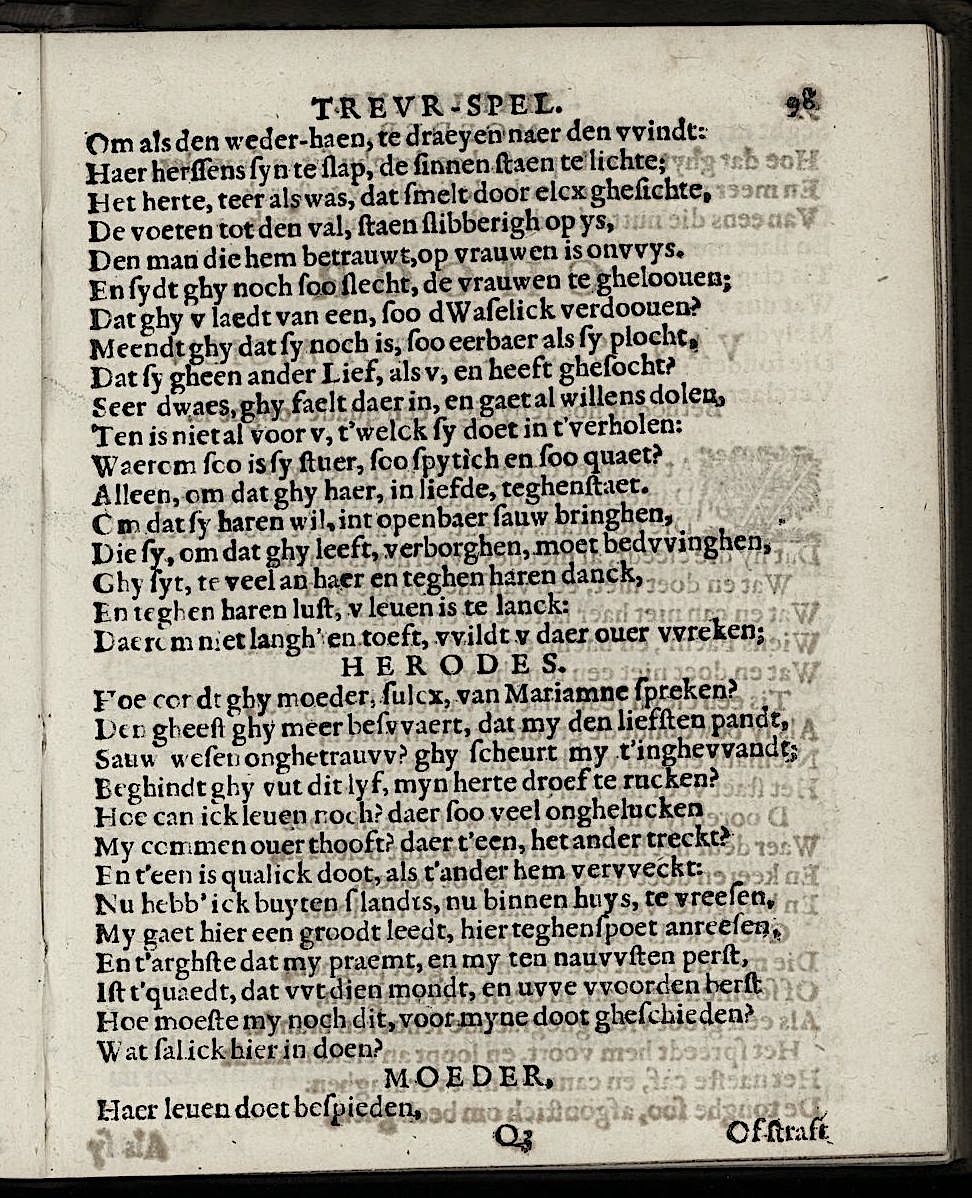 TREVR-SPEL. 98
Om als den weder-haen, te draeyen naer den vvindt:
Haer herſſens ſyn te ſlap, de ſinnen ſtaen te lichte;
Het herte, teer als was, dat ſmelt door elcx gheſichte,
De voeten tot den val, ſtaen ſlibberigh op ys,
Den man die hem betrauwt, op vrauwen is onvvys.
En ſydt ghy noch ſoo ſlecht, de vrauwen te gheloouen;
Dat ghy v laedt van een, ſoo dWaſelick verdoouen?
Meendt ghy dat ſy noch is, ſoo eerbaer als ſy plocht,
Dat ſy gheen ander Lief, als v, en heeft gheſocht?
Seer dwaes, ghy faelt daer in, en gaet al willens dolen,
Ten is niet al voor v, t'welck ſy doet in t'verholen:
Waerom ſoo is ſy ſtuer, ſoo ſpytich en ſoo quaet?
Alleen, om dat ghy haer, in liefde, teghenſtaet.
Om dat ſy haren wil, int openbaer ſauw bringhen,
Die ſy, om dat ghy leeft, verborghen, moet bedvvinghen,
Ghy ſyt, te veel an haer en teghen haren danck,
En teghen haren luſt, v leuen is te lanck:
Daerom niet langh' en toeft, vvildt v daer ouer vvreken;
HERODES.
Hoe cordt ghy moeder, ſulcx, van Mariamne ſpreken?
Den gheeſt ghy meer beſvvaert, dat my den liefſten pandt,
Sauw weſen onghetrauvv? ghy ſcheurt my t'inghevvandt;
Beghindt ghy vut dit lyf, myn herte droef te rucken?
Hoe can ick leuen noch? daer ſoo veel onghelucken
My commen ouer thooft? daer t'een, het ander treckt?
En t'een is qualick doot, als t'ander hem vervveckt:
Nu hebb' ick buyten ſlandts, nu binnen huys, te vreeſen,
My gaet hier een groodt leedt, hier teghenſpoet anreeſen,
En t'arghſte dat my praemt, en my ten nauvvſten perſt,
Iſt t'quaedt, dat vvt dien mondt, en uvve vvoorden berſt
Hoe moeſte my noch dit, voor myne doot gheſchieden?
Wat ſal ick hier in doen?
MOEDER,
Haer leuen doet beſpieden,
Q3 Of ſtraft